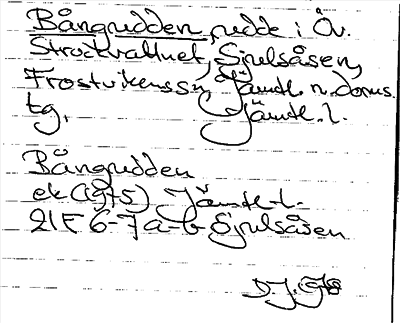 Bångnudden, udde i Öv.
Stockvattnet, Sjulsåsen,
Frostvikens sn, Jämtl. n. doms.
tg. Jämtl. l.
Bångnudden
ek (1975) Jämtl. l.
21E 6-7 a-b Sjulsåsen
D.J.